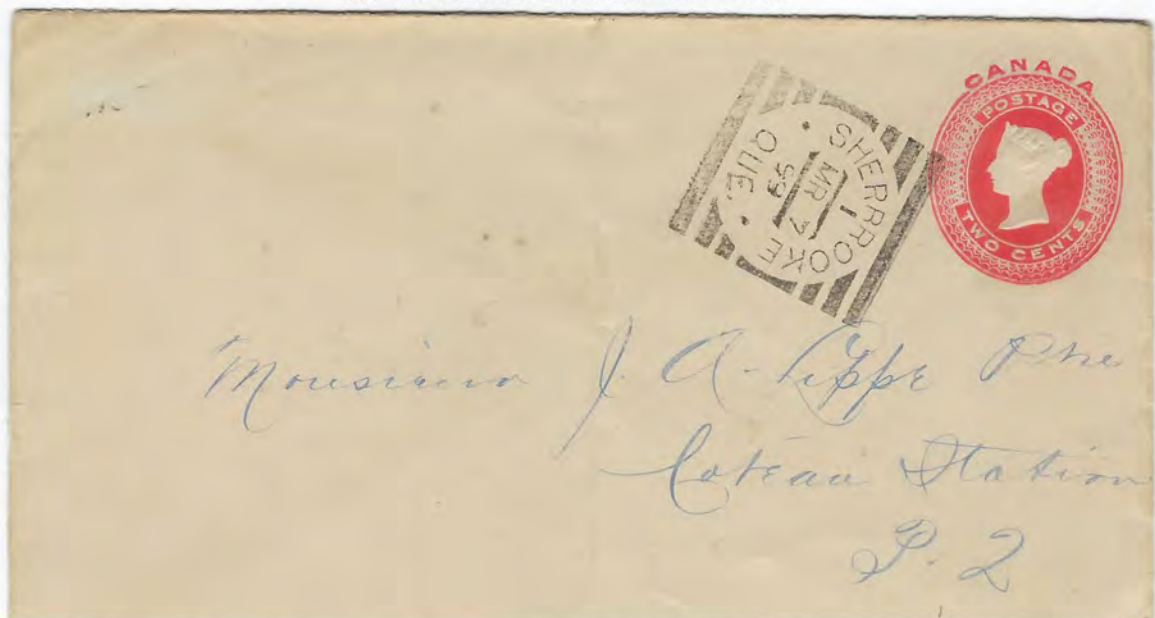 CANADA
POSTAGE
TWO CENTS
SHERBROOKE
1
MR 7
99
QUE.
Monsieur J. A. Lippe Ptre
Coteau Station
P. Q